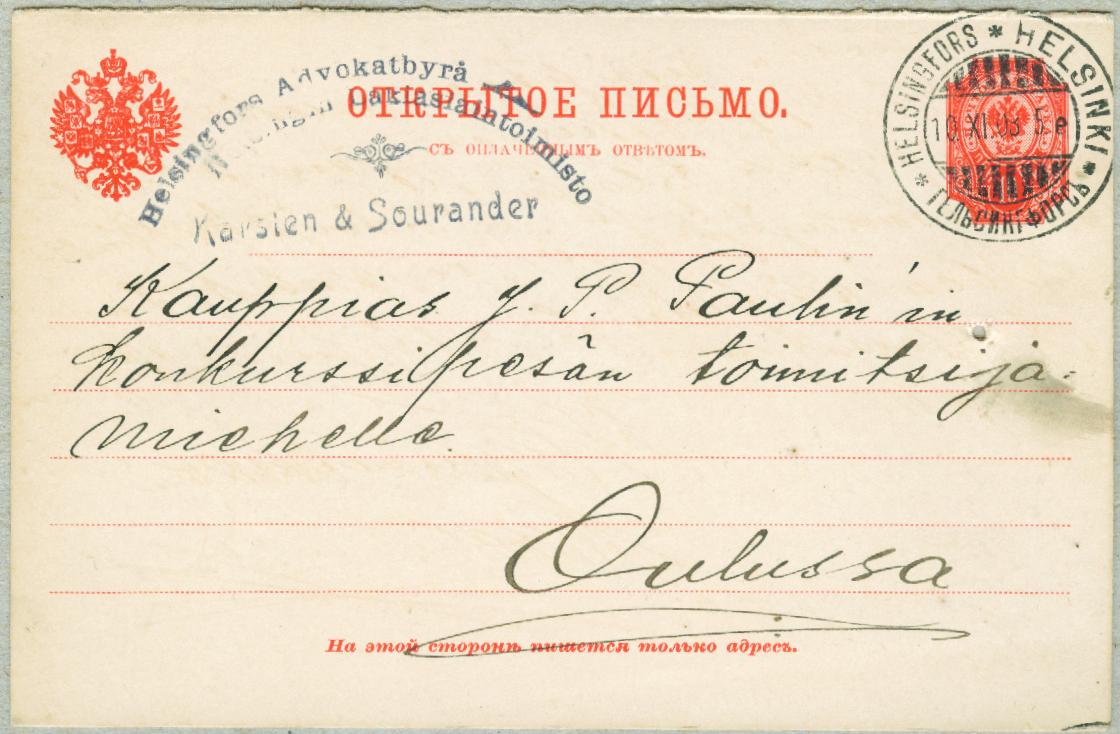 Helsingfors Advokatbyrå
Helsingin Lakiasiaintoimisto
Karsten & Sourander
ОТКРЫТОЕ ПИСЬМО.
СЪ ОПЛАЧЕННЫМЪ ОТВѢТОМЪ.
* HELSINGFORS * HELSINKI * ГЕЛЬСИНГФОРСЪ
XI.03
Kauppias J. P. Paulin'in
konkurssipesän toimitsija-
miehelle
Oulussa
На этой сторонѣ пишется только адресъ.